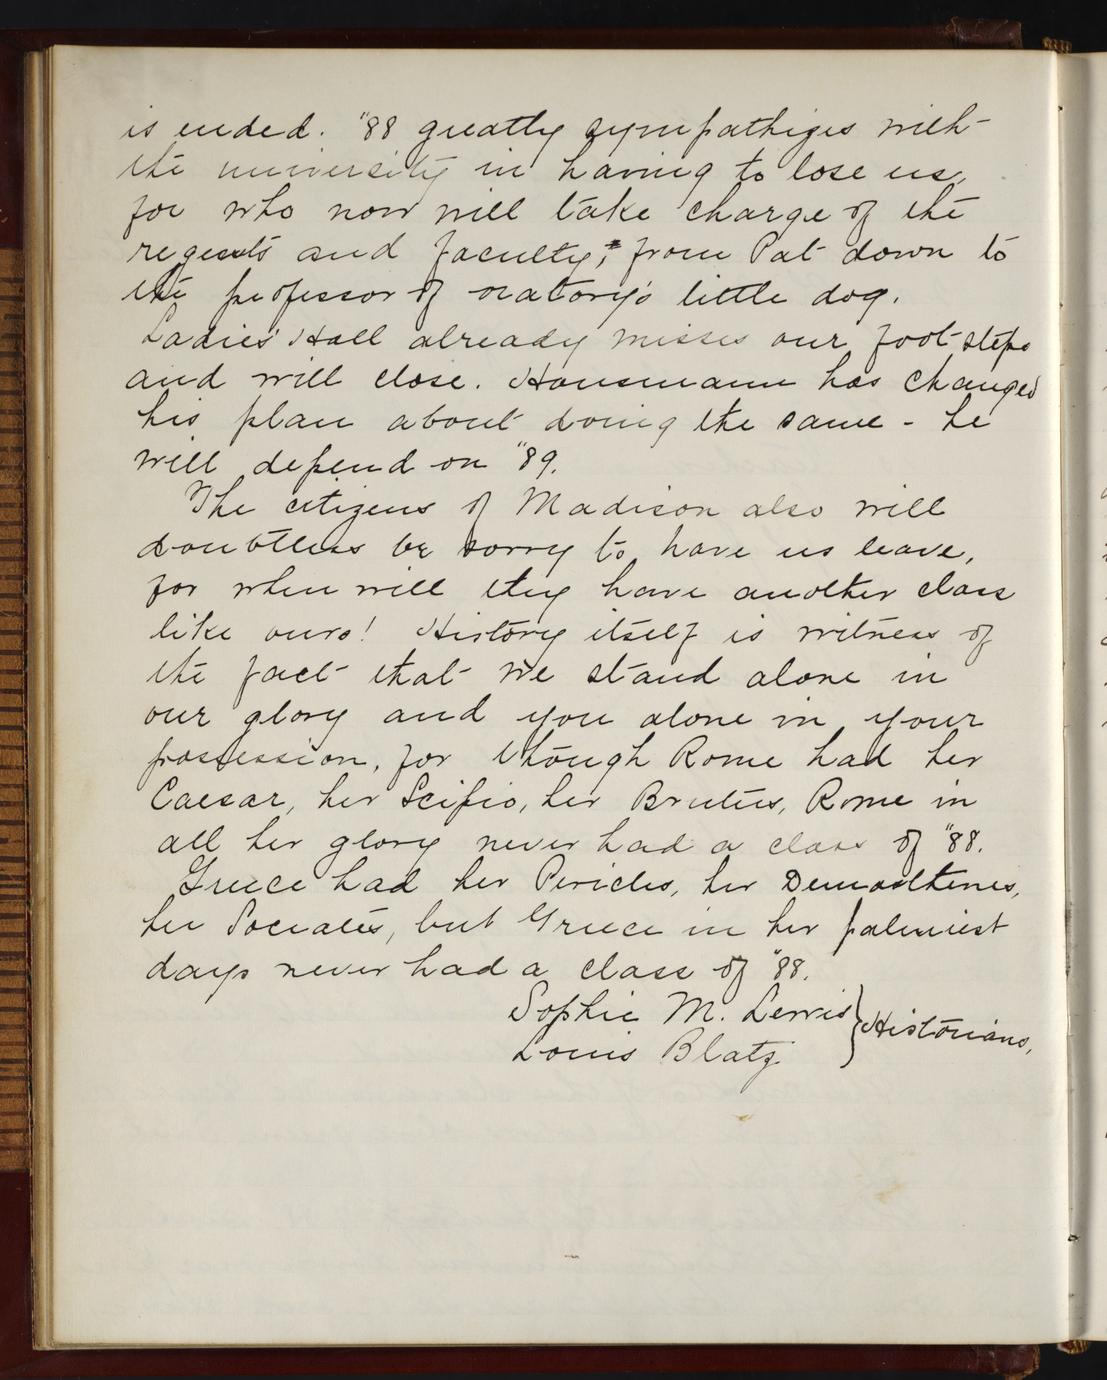 is ended. "88 greatly sympathizes with
the university in having to lose us,
for who now will take charge of the
regents and faculty, from Pat down to
the professor of oratory's little dog.
Ladies' Hall already misses our footsteps
and will close. Hausmann has changed
his plan about doing the same - he
will depend on "89.
The citizens of Madison also will
doubtless be sorry to have us leave,
for when will they have another class
like ours! History itself is witness of
the fact that we stand alone in
our glory and you alone in your
possession, for though Rome had her
Caesar, her Scipio, her Brutus, Rome in
all her glory never had a class of "88.
Greece had her Pericles, her Demosthenes,
her Socrates, but Greece in her palmiest
days never had a class of "88.
Sophie M. Lewis } Historians,
Louis Blatz